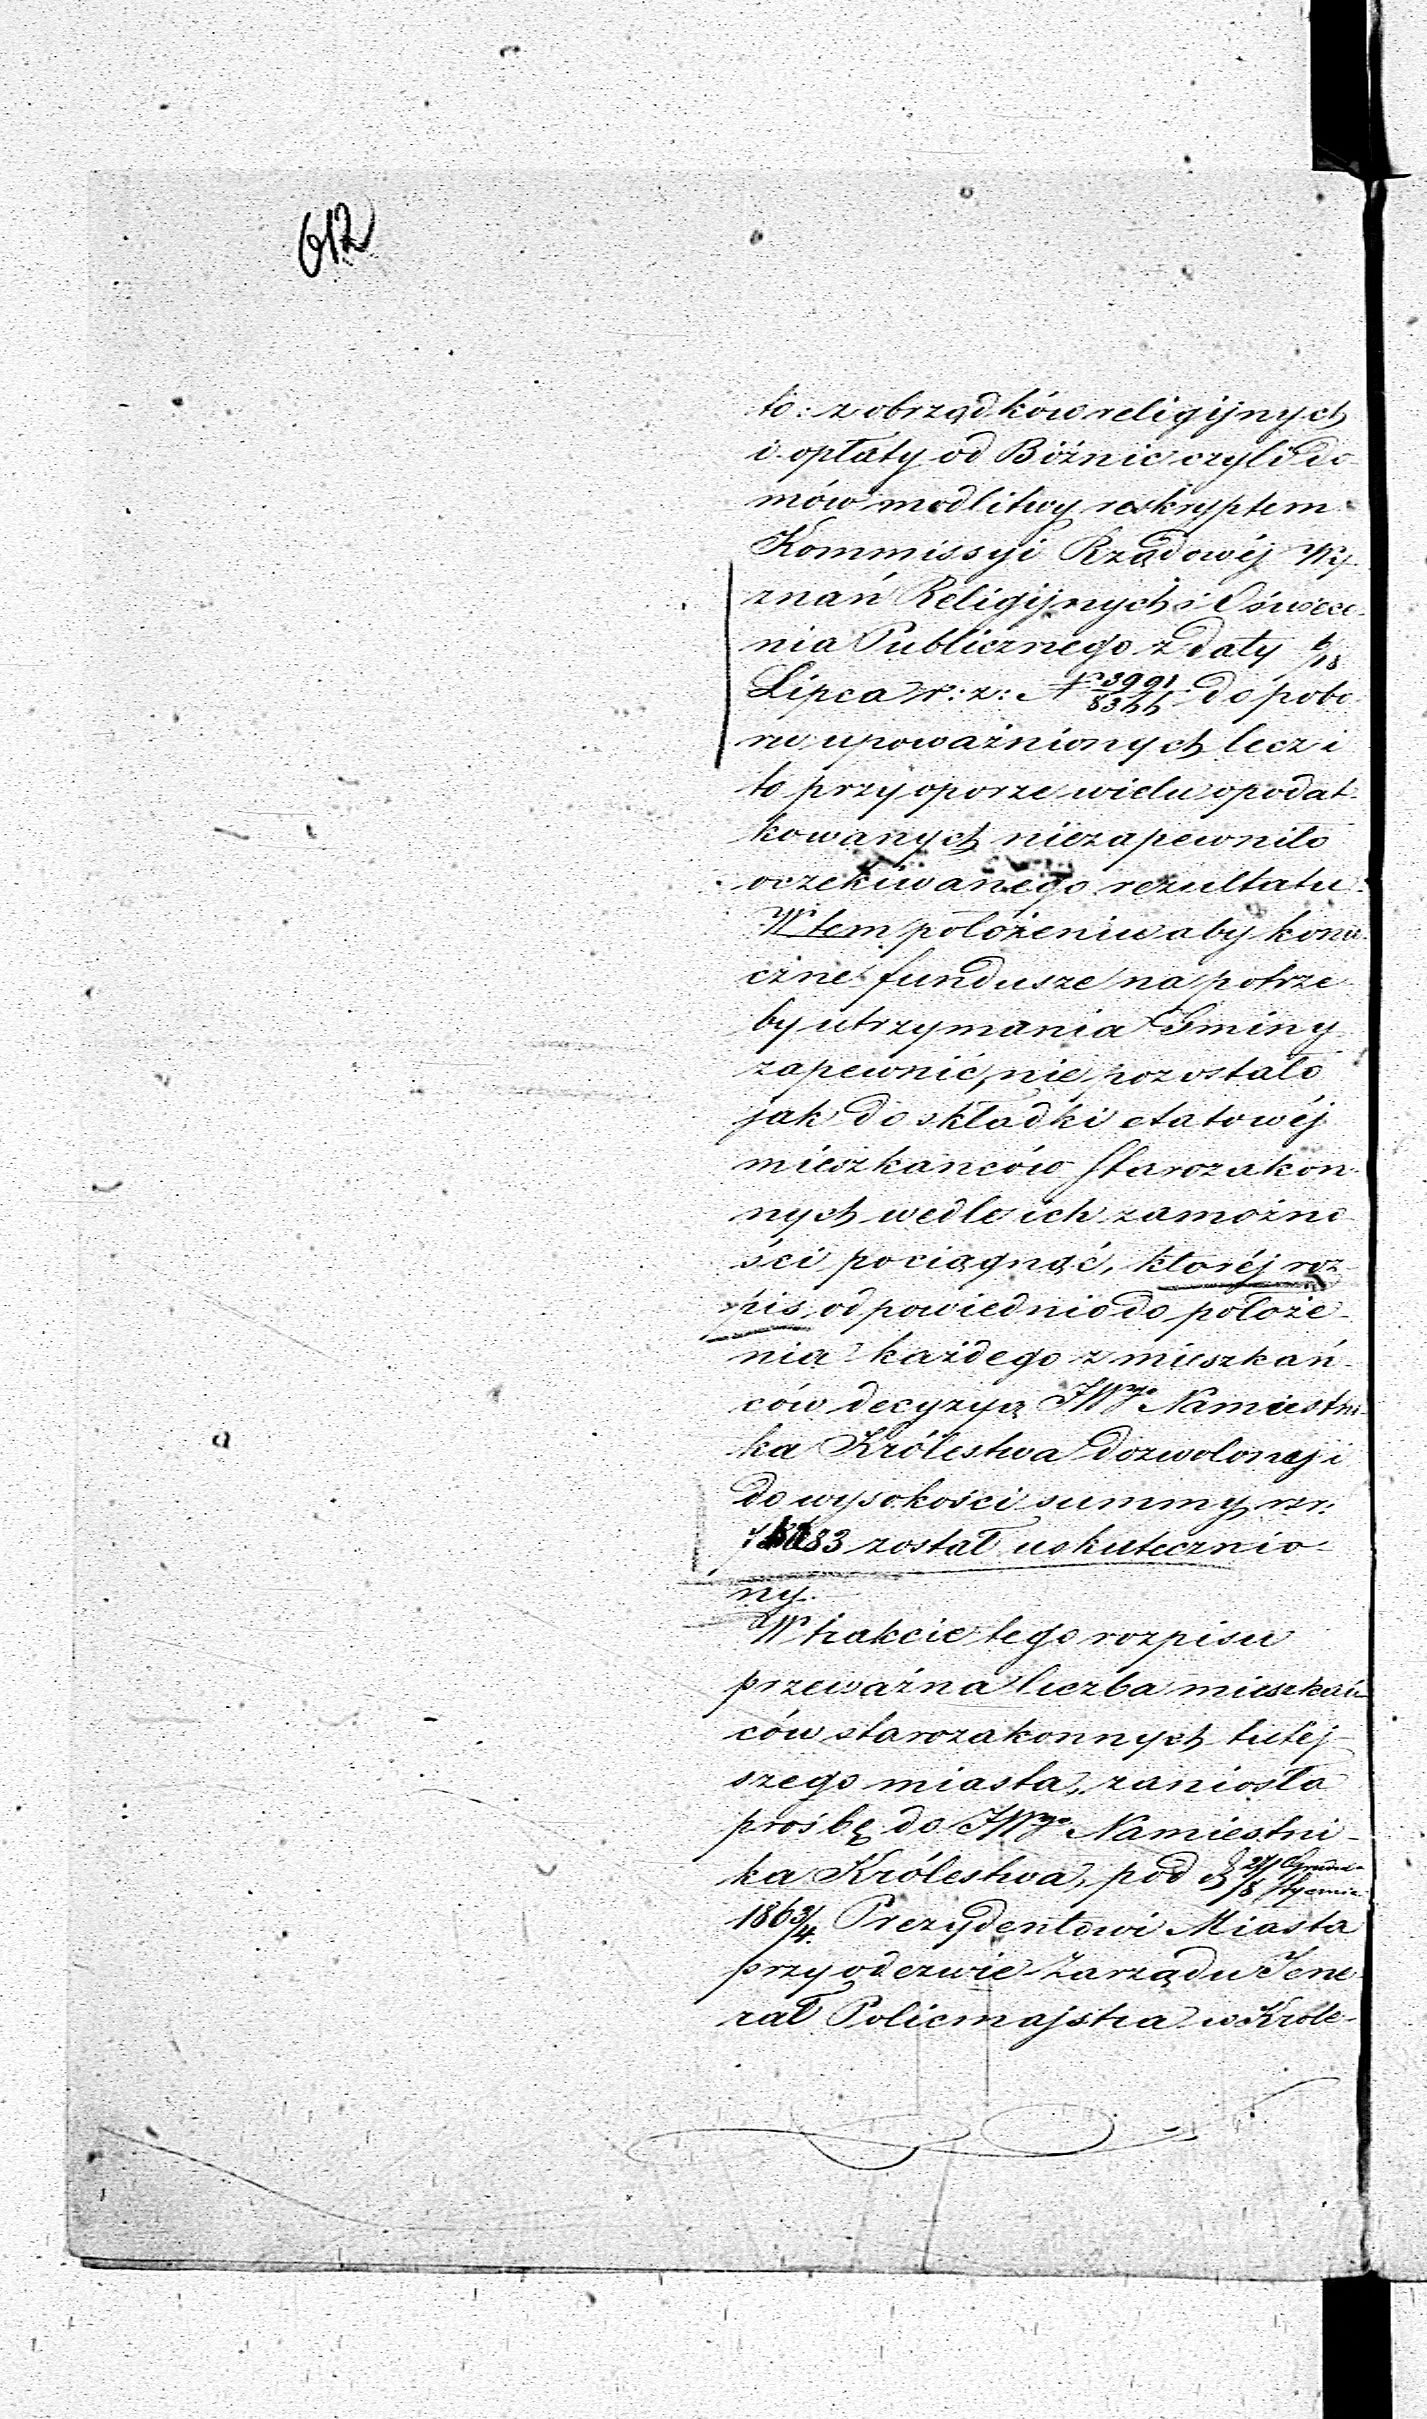 612
to: z obrządków religijnych
i opłaty od Bóżnic czyli do-
mów modlitwy reskryptem
Kommissyi Rządowéj Wy-
znań Religijnych i Oświece-
nia Publicznego z daty 6/18
Lipca r: z: N 3991/8366 do pobo-
ru upoważnionych lecz i
to przy oporze wielu opodat-
kowanych niezapewniło
oczekiwanego rezultatu.
W tem położeniu aby konie-
czne fundusze na potrze-
by utrzymania Gminy
zapewnić, nie pozostało
jak do składki etatowéj
mieszkanców starozakon-
nych wedle ich zamożno-
ści pociągnąć, któréj roz-
pis odpowiednio do położe-
nia każdego z mieszkań-
ców decyzyą JWgo Namiestni-
ka Królestwa dozwolonej i
do wysokości summy rsr.
83 został uskutecznio-
ny.
W trakcie tego rozpisu
przeważna liczba mieszkań-
ców starozakonnych tutej-
szego miasta, zaniosła
prośbę do JWgo Namiestni-
ka Królestwa, pod d Grudnia/8 Stycznia
1863/4 Prezydentowi Miasta
przy odezwie Zarządu Jene-
rał Policmajstra w Króle-